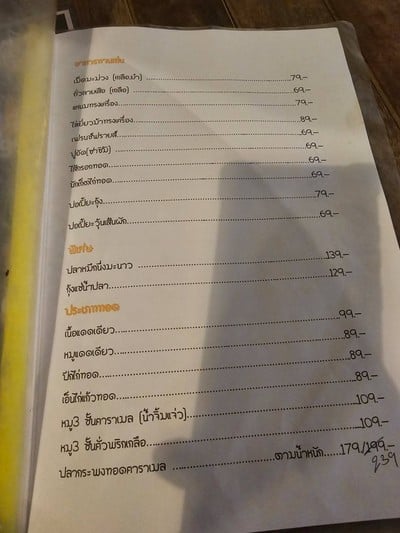 อาหารทานเล่น
เม็ดมะม่วง (เกลือ,ยำ) 79.-
ถั่วลายเสือ (เกลือ) 69.-
แหนมทรงเครื่อง 79.-
ไข่เยี่ยวม้าทรงเครื่อง 89.-
เฟรนส์ฟรายส์ 69.-
ปูอัด(ซาชิมิ) 69.-
ไส้กรอกทอด 69.-
นักเก็ตไก่ทอด 69.-
ปอเปี๊ยะกุ้ง 79.-
ปอเปี๊ยะวุ้นเส้นผัก 69.-
พิเศษ
ปลาหมึกนึ่งมะนาว 139.-
กุ้งแช่น้ำปลา 129.-
ประเภททอด
เนื้อแดดเดียว 99.-
หมูแดดเดียว 89.-
ปีกไก่ทอด 89.-
เอ็นไก่แก้วทอด 89.-
หมู3 ชั้นคาราเมล (น้ำจิ้มแจ่ว) 109.-
หมู3 ชั้นคั่วพริกเกลือ 109.-
ปลากระพงทอดคาราเมล ตามน้ำหนัก 179/199.-
239